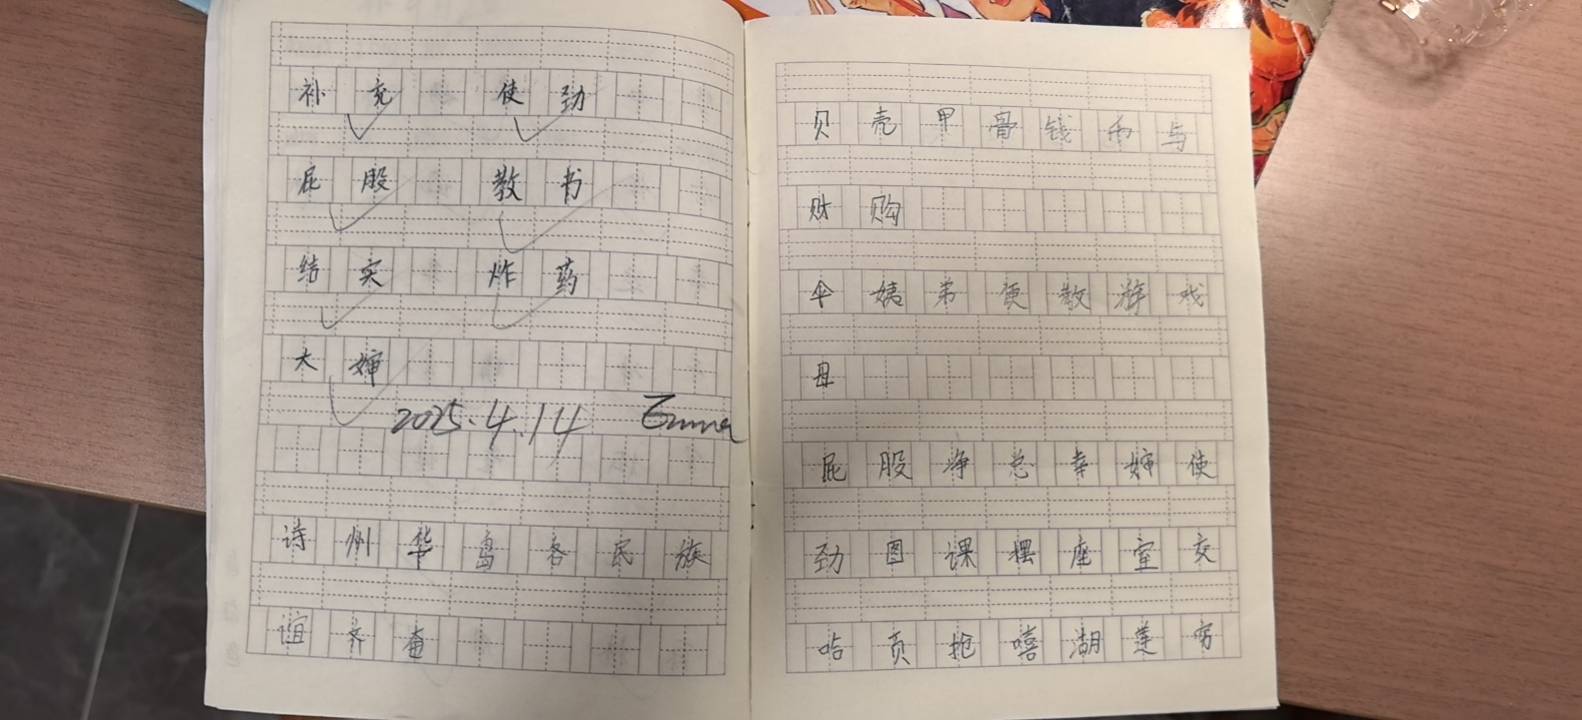 补充 使劲
屁股 教书
结实 炸药
大婶
2025.4.14 Emma
诗州华岛各民族
谊齐奋
贝壳甲骨钱币与
财购
伞姨弟便教游戏
母
屁股净总幸婶使
劲图课摆座室交
哈页抢嘻湖莲穷